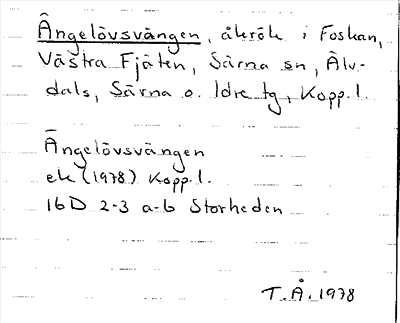 Ängelövsvängen, åkrök i Foskan,
Västra Fjäten, Särna sn, Älv-
dals, Särna o. Idre tg, Kopp.l.
Ängelövsvängen
ek (1978) Kopp.l.
16D 2-3 a-b Storheden
T.Å. 1978